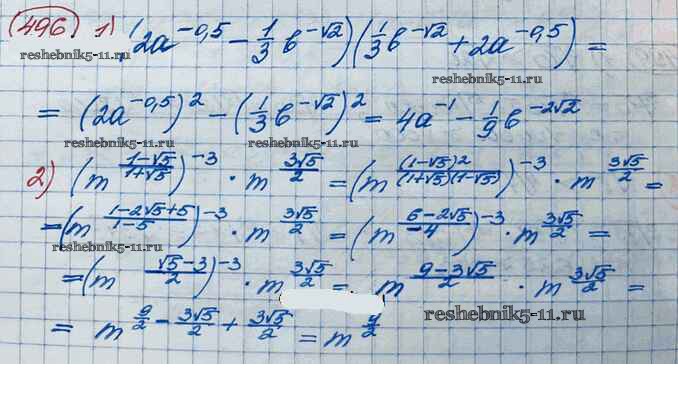 496 1) (2a^{-0,5} - \frac{1}{3}b^{-√2})(\frac{1}{3}b^{-√2} + 2a^{-0,5}) =
reshebnik5-11.ru reshebnik5-11.ru
= (2a^{-0,5})^2 - (\frac{1}{3}b^{-√2})^2 = 4a^{-1} - \frac{1}{9}b^{-2√2}
reshebnik5-11.ru reshebnik5-11.ru
2) (m^{\frac{1-√5}{1+√5}})^{-3} · m^{\frac{3√5}{2}} = (m^{\frac{(1-√5)^2}{(1+√5)(1-√5)}})^{-3} · m^{\frac{3√5}{2}} =
=(m^{\frac{1-2√5+5}{1-5}})^{-3} · m^{\frac{3√5}{2}} = (m^{\frac{6-2√5}{-4}})^{-3} · m^{\frac{3√5}{2}} =
reshebnik5-11.ru reshebnik5-11.ru
=(m^{\frac{√5-3}{2}})^{-3} · m^{\frac{3√5}{2}} = m^{\frac{9-3√5}{2}} · m^{\frac{3√5}{2}} =
reshebnik5-11.ru
= m^{\frac{9}{2} - \frac{3√5}{2} + \frac{3√5}{2}} = m^{\frac{9}{2}}